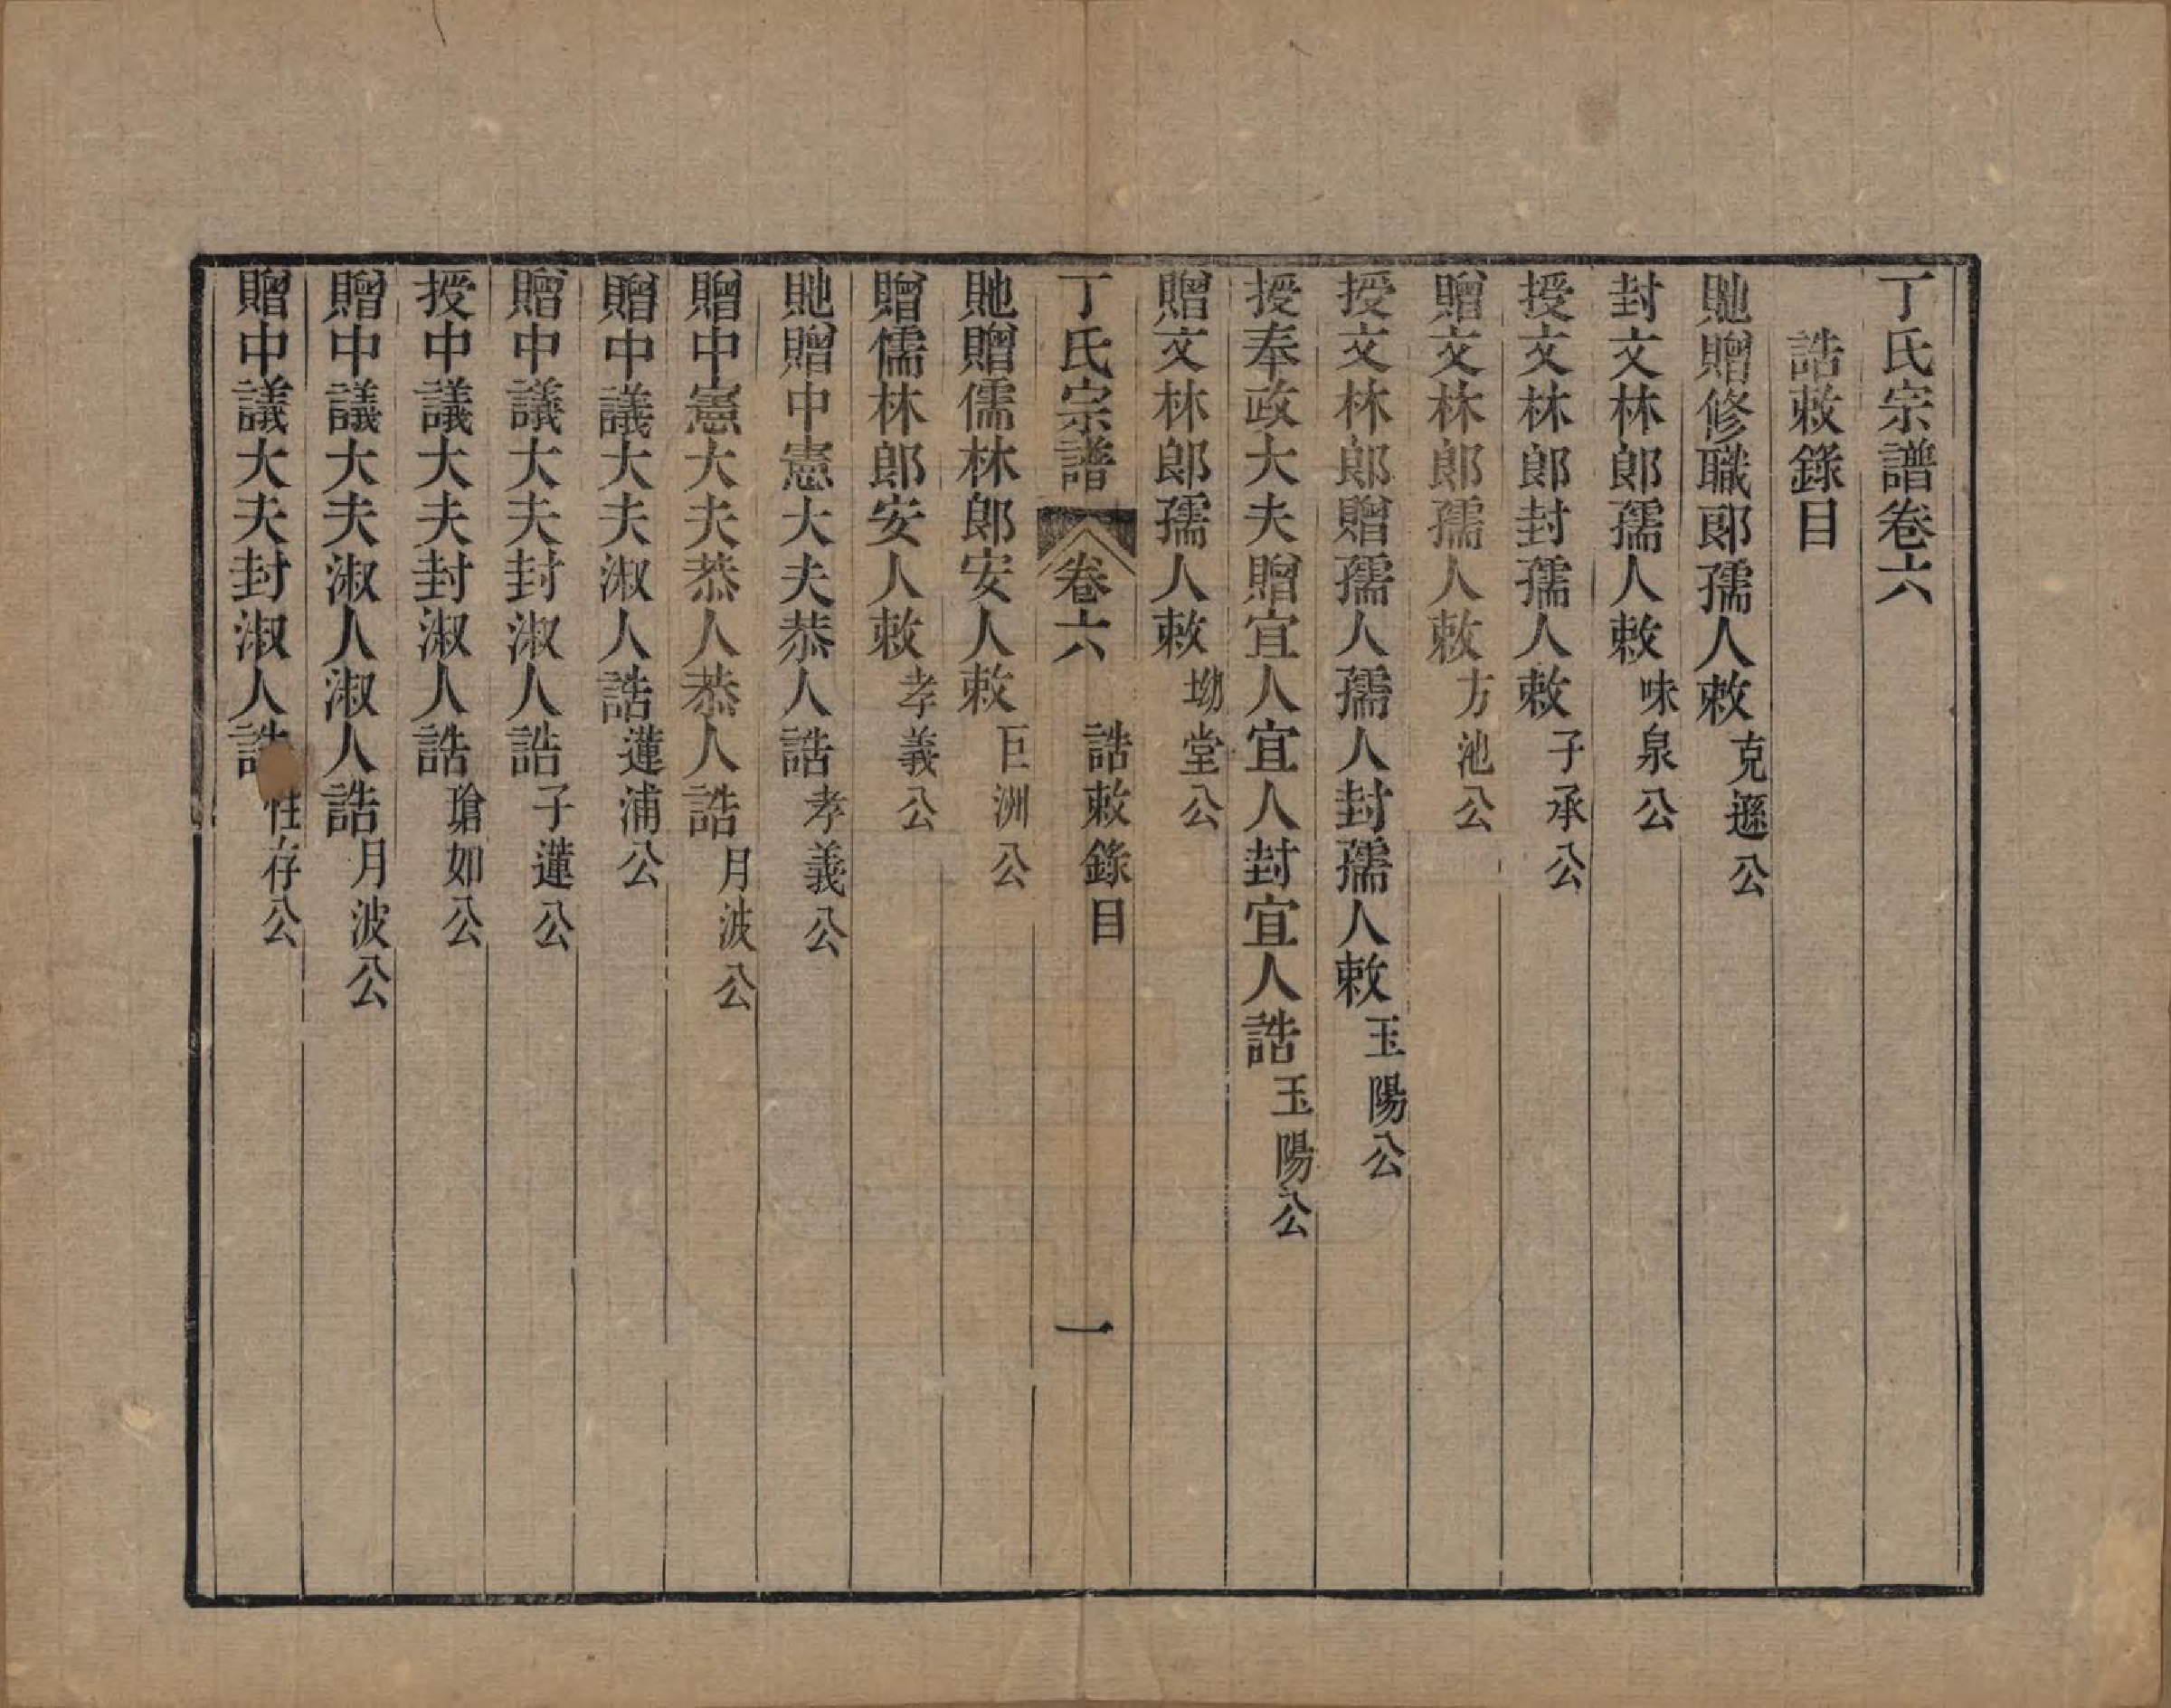 丁氏宗譜卷六
誥敕錄目
貤贈修職郎孺人敕克遜公
封文林郎孺人敕味泉公
授文林郎封孺人敕子承公
贈文林郎孺人敕方池公
授文林郎贈孺人孺人封孺人敕玉陽公
授奉政大夫贈宜人宜人封宜人誥玉陽公
贈文林郎孺人敕坳堂公
丁氏宗譜 卷六 誥敕錄目 一
貤贈儒林郎安人敕巨洲公
贈儒林郎安人敕孝義公
貤贈中憲大夫恭人誥孝義公
贈中憲大夫恭人恭人誥月波公
贈中議大夫淑人誥蓮浦公
贈中議大夫封淑人誥子蓮公
授中議大夫封淑人誥瑲如公
贈中議大夫淑人淑人誥月波公
贈中議大夫封淑人誥性存公